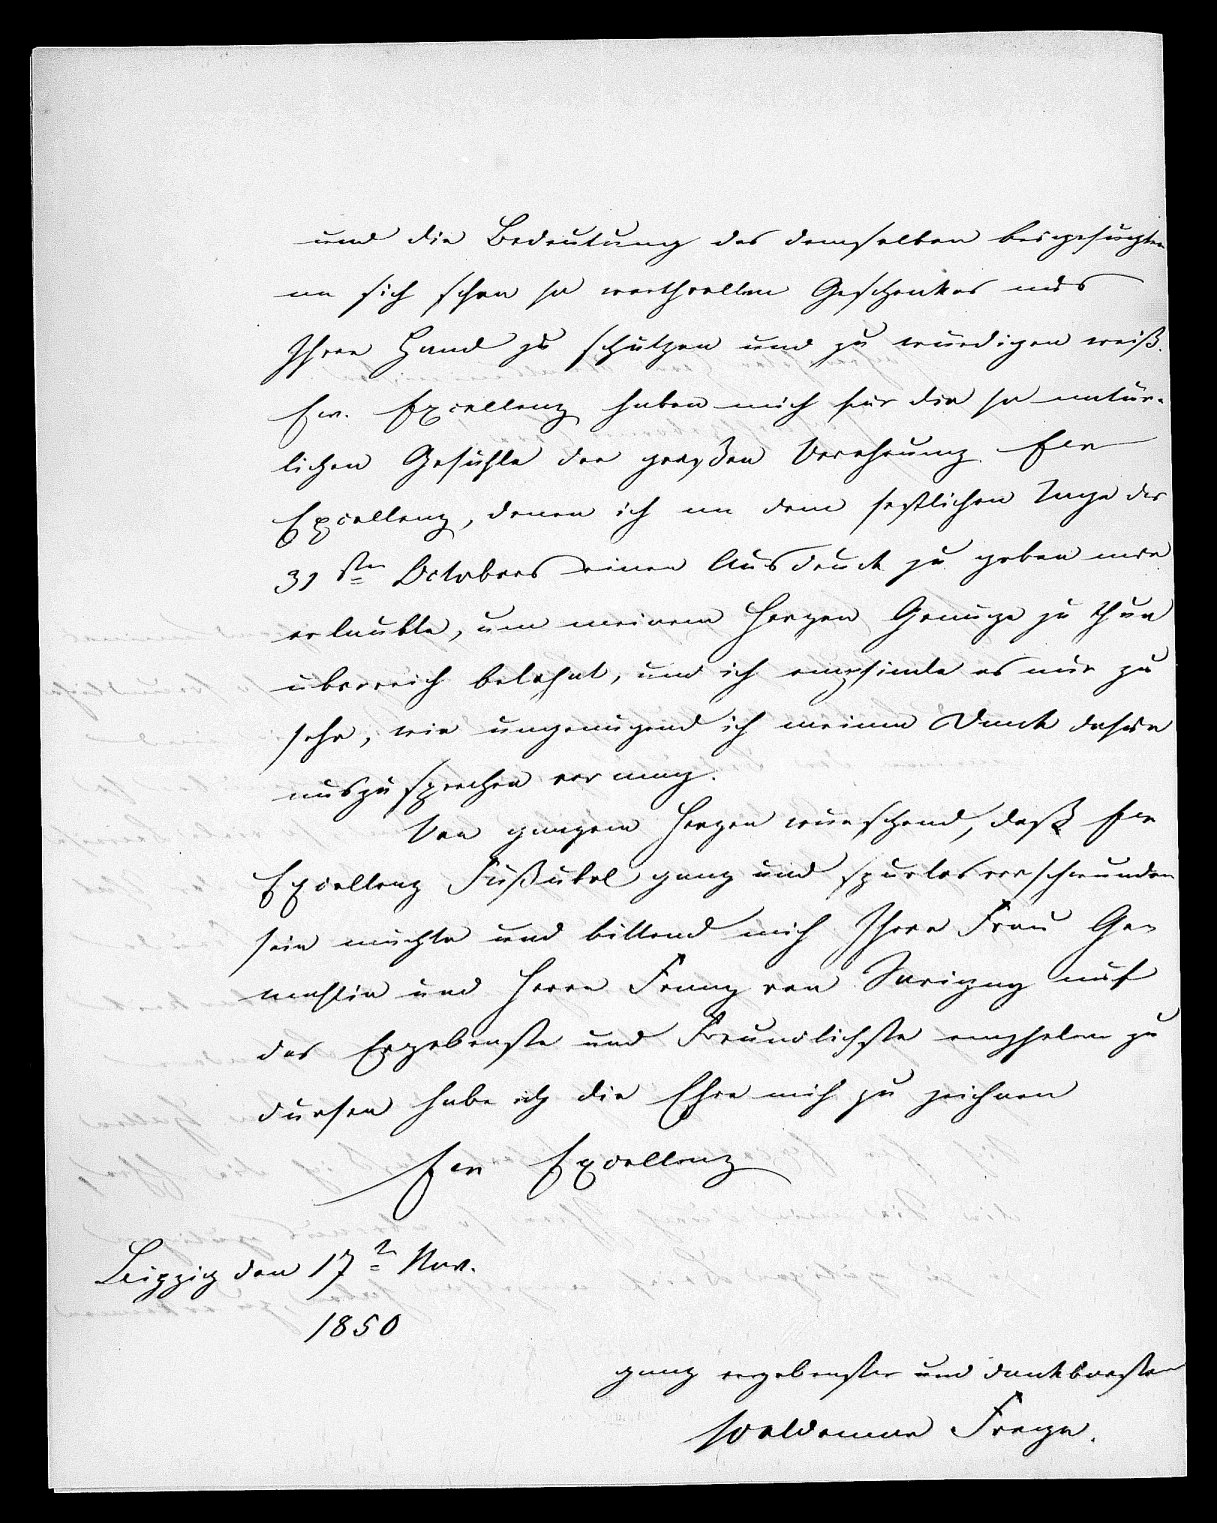 und die Bedeutung des demselben beigefügten
an sich schon so werthvollen Geschenkes aus
Ihrer Hand zu schätzen und zu würdigen weiß.
Ew. Excellenz haben mich für die so natür-
lichen Gefühle der großen Verehrung Ew
Excellenz, denen ich an dem festlichen Tage des
31sten Octobers einen Ausdruck zu geben mir
erlaubte, um meinem Herzen Genüge zu thun
überreich belohnt, und ich empfinde es nur zu
sehr, wie ungenügend ich meinen Dank dafür
auszusprechen vermag.
Von ganzem Herzen wünschend, daß Ew
Excellenz Fußübel ganz und spurlos verschwunden
sein möchte und bittend mich Ihrer Frau Ge-
mahlin und Herrn Franz von Savigny auf
das Ergebenste und Freundlichste empfehlen zu
dürfen habe ich die Ehre mich zu zeichnen
Ew Excellenz
Leipzig den 17n Nov.
1850
ganz ergebenster und dankbarster
Woldemar Frege.